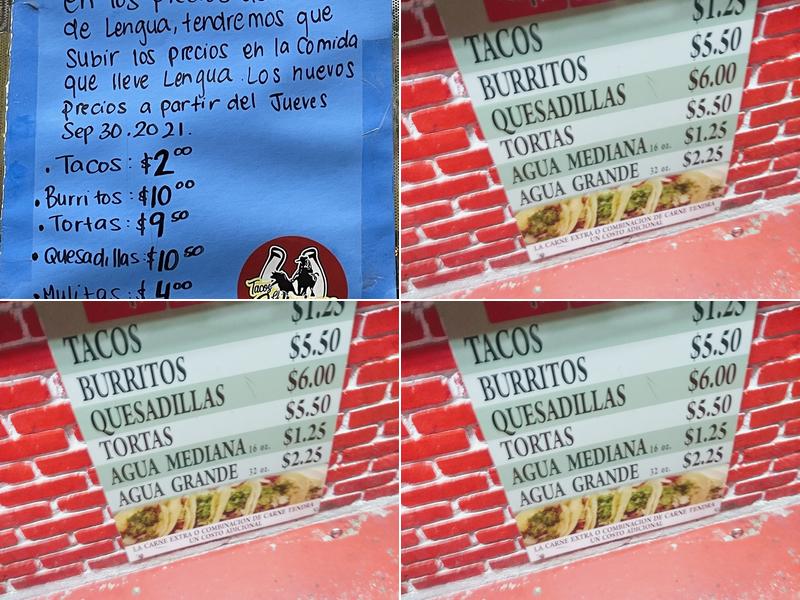 en los precios
de Lengua, tendremos que
Subir los precios en la comida
que lleve Lengua. Los nuevos
precios a partir del Jueves
Sep 30. 2021.
• Tacos: $2⁰⁰
• Burritos: $10⁰⁰
• Tortas: $9⁵⁰
• Quesadillas: $10⁵⁰
• Mulitas: $4⁰⁰
Tacos
TACOS $1.25
BURRITOS $5.50
QUESADILLAS $6.00
TORTAS $5.50
AGUA MEDIANA 16 oz. $1.25
AGUA GRANDE 32 oz. $2.25
LA CARNE EXTRA O COMBINACION DE CARNE TENDRA
UN COSTO ADICIONAL
TACOS $1.25
BURRITOS $5.50
QUESADILLAS $6.00
TORTAS $5.50
AGUA MEDIANA 16 oz. $1.25
AGUA GRANDE 32 oz. $2.25
LA CARNE EXTRA O COMBINACION DE CARNE TENDRA
UN COSTO ADICIONAL
TACOS $1.25
BURRITOS $5.50
QUESADILLAS $6.00
TORTAS $5.50
AGUA MEDIANA 16 oz. $1.25
AGUA GRANDE 32 oz. $2.25
LA CARNE EXTRA O COMBINACION DE CARNE TENDRA
UN COSTO ADICIONAL